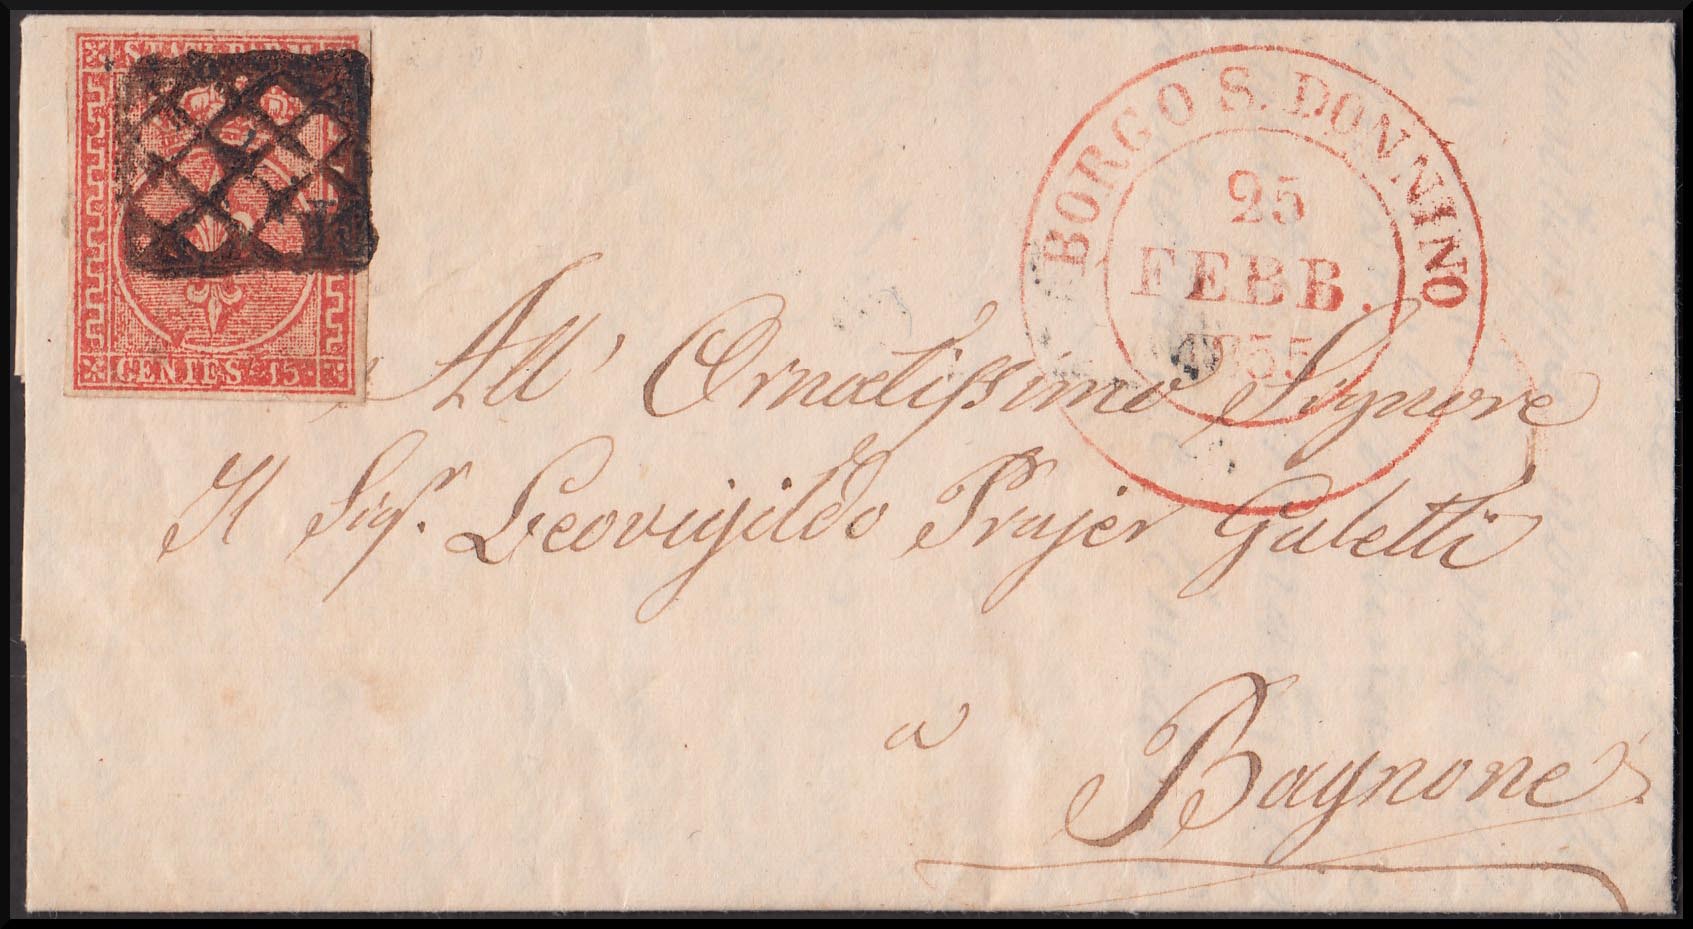 STATI PARM.
CENTES. 15
BORGO S. DONNINO
25
FEBB.
1855
All' Ornatissimo Signore
Il Sigr. Leovigildo Prajer Galetti
a
Bagnone